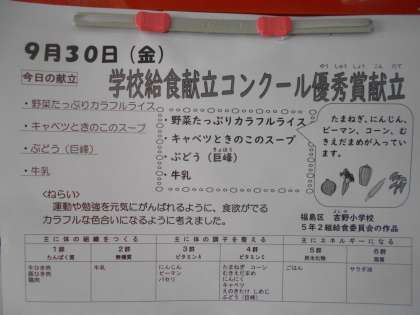 9月30日(金)
今日の献立
学校給食献立コンクール優秀賞献立
・野菜たっぷりカラフルライス
・キャベツときのこのスープ
・ぶどう(巨峰)
・牛乳
・野菜たっぷりカラフルライス
・キャベツときのこのスープ
・ぶどう(巨峰)
・牛乳
たまねぎ、にんじん、
ピーマン、コーン、む
きえだまめが入ってい
ます。
<ねらい>
運動や勉強を元気にがんばれるように、食欲がでる
カラフルな色合いになるように考えました。
福島区 吉野小学校
5年2組給食委員会の作品
主に体の組織をつくる
主に体の調子を整える
主にエネルギーになる
1群 2群 3群 4群 5群 6群
たんぱく質 無機質 ビタミンA ビタミンC 炭水化物 脂質
牛ひき肉
豚ひき肉
鶏肉
牛乳
にんじん
ピーマン
パセリ
たまねぎ コーン
むきえだまめ
にんにく
キャベツ
えのきたけ しめじ
ぶどう(巨峰)
ごはん
サラダ油